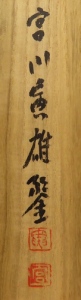 宮川寅雄鑒